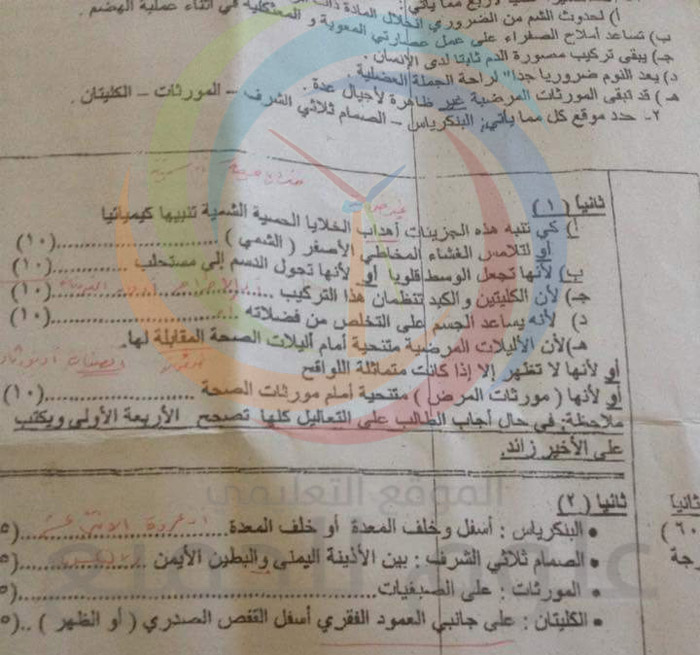 أ) لحدوث الشم من الضروري انحلال المادة ذات
ب) تساعد أملاح الصفراء على عمل عصارتي المعوية و المعثكلية في أثناء عملية الهضم.
جـ) يبقى تركيب مصورة الدم ثابتا لدى الإنسان.
د) يعد النوم ضروريا جدا" لراحة الجملة العصبية.
هـ) قد تبقى المورثات المرضية غير ظاهرة لأجيال عدة.
٢- حدد موقع كل مما يأتي: البنكرياس – الصمام ثلاثي الشرف – المورثات – الكليتان.
ثانيا (١)
أ) كي تنبه هذه الجزيئات أهداب الخلايا الحسية الشمية تنبيها كيميائيا
أو لتلامس الغشاء المخاطي الأصفر ( الشمي ) ......................(١٠)
ب) لأنها تجعل الوسط قلويا أو لأنها تحول الدسم إلى مستحلب ............(١٠)
جـ) لأن الكليتين والكبد تنظمان هذا التركيب ......................(١٠)
د) لأنه يساعد الجسم على التخلص من فضلاته ......................(١٠)
هـ) لأن الأليلات المرضية متنحية أمام أليلات الصحة المقابلة لها.
أو لأنها لا تظهر إلا إذا كانت متماثلة اللواقح
أو لأنها ( مورثات المرض ) متنحية أمام مورثات الصحة ......................(١٠)
ملاحظة: في حال أجاب الطالب على التعاليل كلها تصحح الأربعة الأولى ويكتب
على الأخير زائد.
الموقع التعليمي
ثانيا (٢)
ثانيا
• البنكرياس : أسفل وخلف المعدة أو خلف المعدة......................(٥
٦٠)
• الصمام ثلاثي الشرف: بين الأذينة اليمنى والبطين الأيمن ......................(٥
رجة
• المورثات : على الصبغيات......................(٥
• الكليتان : على جانبي العمود الفقري أسفل القفص الصدري ( أو الظهر ) ..(٥